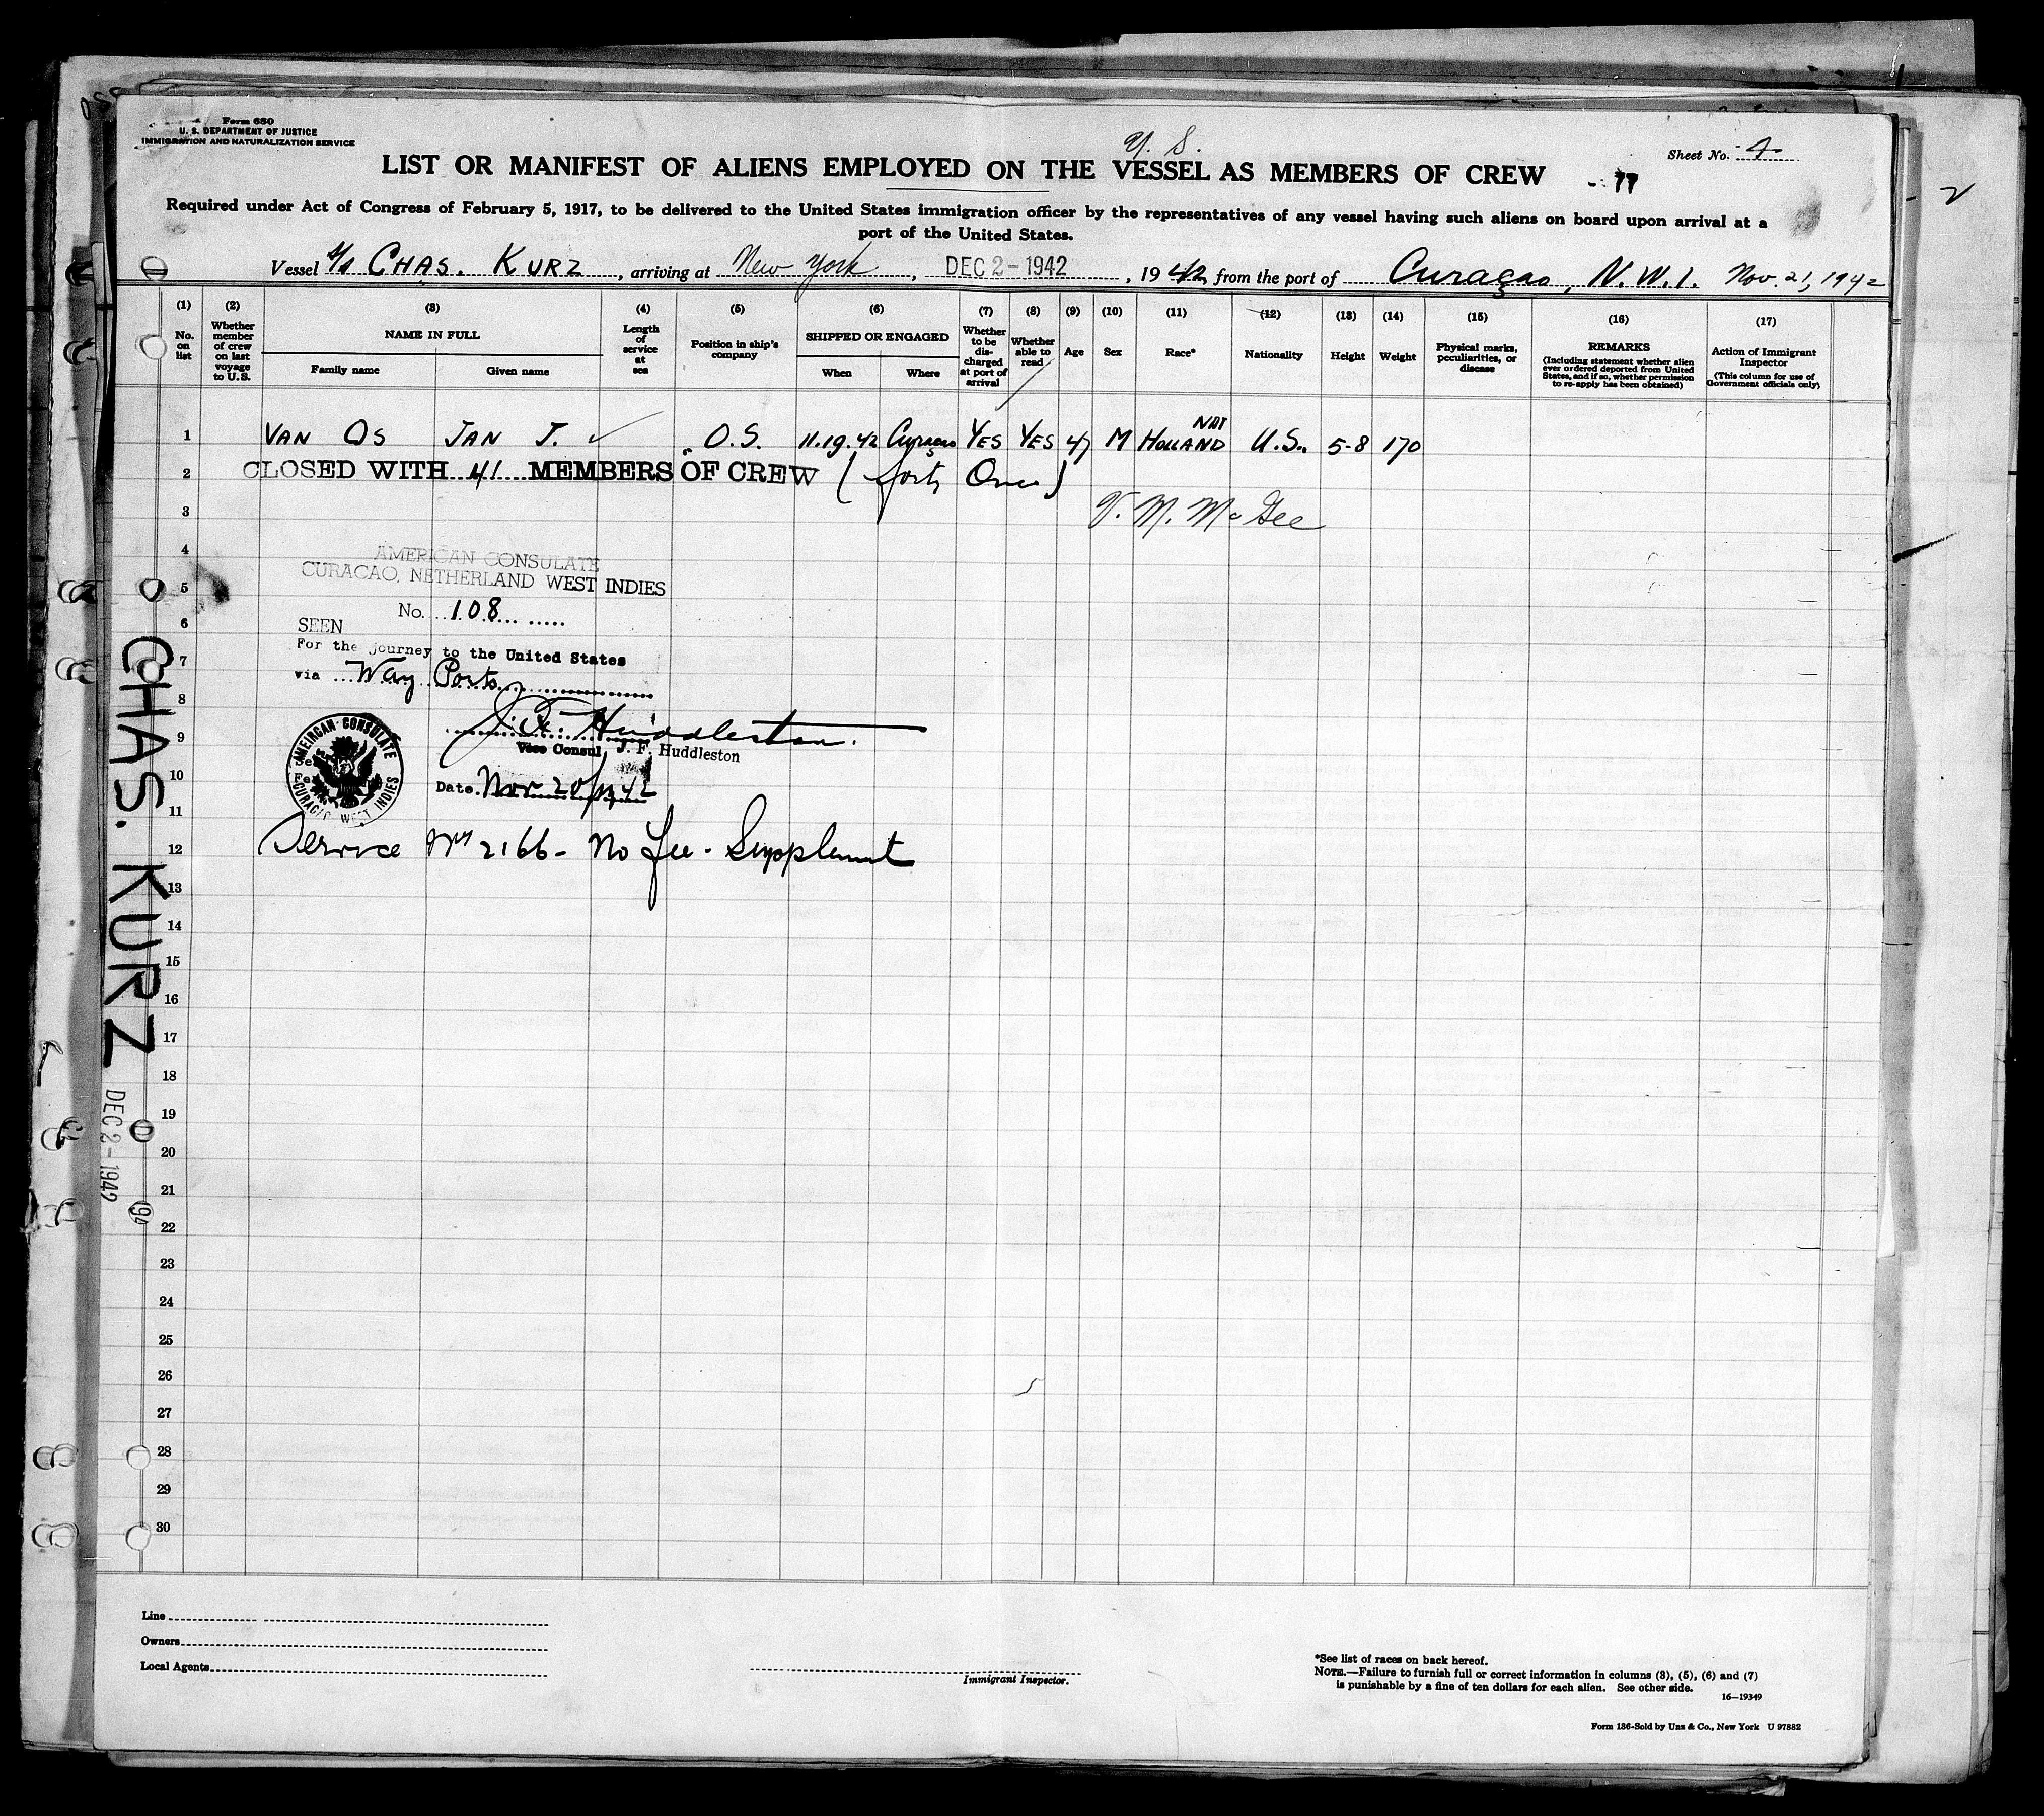 Form 680
U. S. DEPARTMENT OF JUSTICE
IMMIGRATION AND NATURALIZATION SERVICE
Sheet No. 4
LIST OR MANIFEST OF ALIENS EMPLOYED ON THE VESSEL AS MEMBERS OF CREW
Required under Act of Congress of February 5, 1917, to be delivered to the United States immigration officer by the representatives of any vessel having such aliens on board upon arrival at a
port of the United States.
Vessel S/S CHAS. KURZ, arriving at New York, DEC 2-1942, 1942, from the port of Curaçao, N.W.I. Nov. 21, 1942
(1) (2) (3) (4) (5) (6) (7) (8) (9) (10) (11) (12) (13) (14) (15) (16) (17)
No. on list
Whether member of crew on last voyage to U.S.
NAME IN FULL
Family name
Given name
Length of service at sea
Position in ship's company
SHIPPED OR ENGAGED
When
Where
Whether to be discharged at port of arrival
Whether able to read
Age
Sex
Race*
Nationality
Height
Weight
Physical marks, peculiarities, or disease
REMARKS
(Including statement whether alien ever ordered deported from United States, and if so, whether permission to re-apply has been obtained)
Action of Immigrant Inspector
(This column for use of Government officials only)
NAT
1 VAN OS JAN J. O.S. 11.19.42 Curaçao YES YES 47 M HOLLAND U.S. 5-8 170
2 CLOSED WITH 41 MEMBERS OF CREW (forty One)
3 V. M. McGee
4 AMERICAN CONSULATE
5 CURACAO, NETHERLAND WEST INDIES
No. 108
6 SEEN
For the journey to the United States
7 via Way Ports
8
9 J. F. Huddleston
Vice Consul J. F. Huddleston
AMERICAN CONSULATE
CURACAO WEST INDIES
10 Date Nov 20/1942
11
12 Service No 2166 - No fee - Supplement
13
14
15
16
17
18
19
20
21
22
23
24
25
26
27
28
29
30
CHAS. KURZ
DEC 2-1942
Line
Owners
Local Agents
Immigrant Inspector.
*See list of races on back hereof.
NOTE.—Failure to furnish full or correct information in columns (3), (5), (6) and (7)
is punishable by a fine of ten dollars for each alien. See other side.
16—19349
Form 136-Sold by Unz & Co., New York U 97882